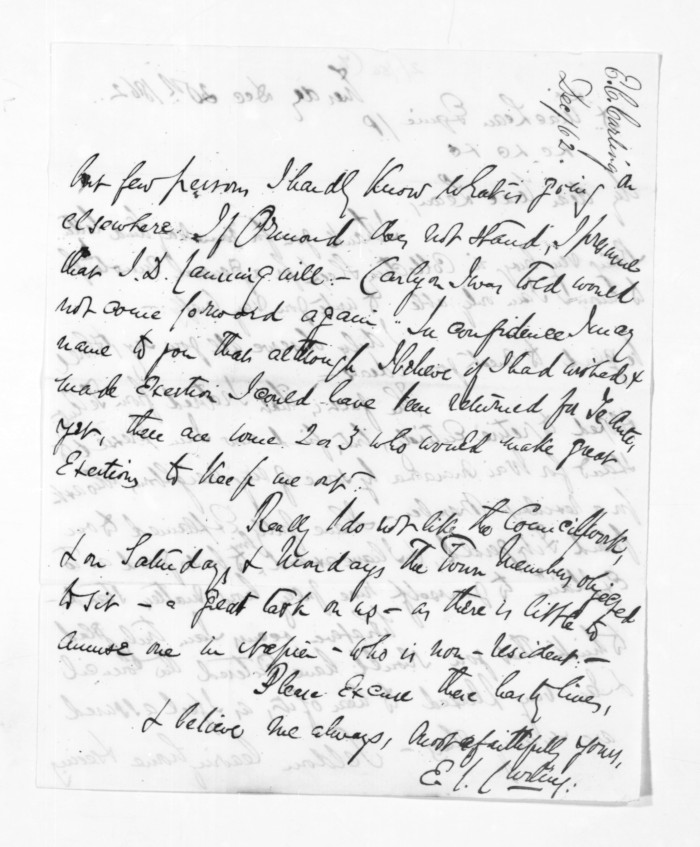 E. C. Carling on
Dec/62.
but few persons I hardly know what is going
elsewhere. If Ormond does not stand, I presume
that J. D. Canning will - Carlyon I was told would
not come forward again. In confidence I may
name to you that although I believe if I had wished &
made Exertion I could have been returned for Te Aute,
yet, there are some 2 or 3 who would make great
Exertions to keep me out.
Really I do not like the Council work,
& on Saturdays & Mondays the Town Members objected
to sit - a great task on us - as there is little to
amuse one in Napier - who is non-resident -
Please Excuse these hasty lines,
& believe me always, most faithfully yours,
E. C.